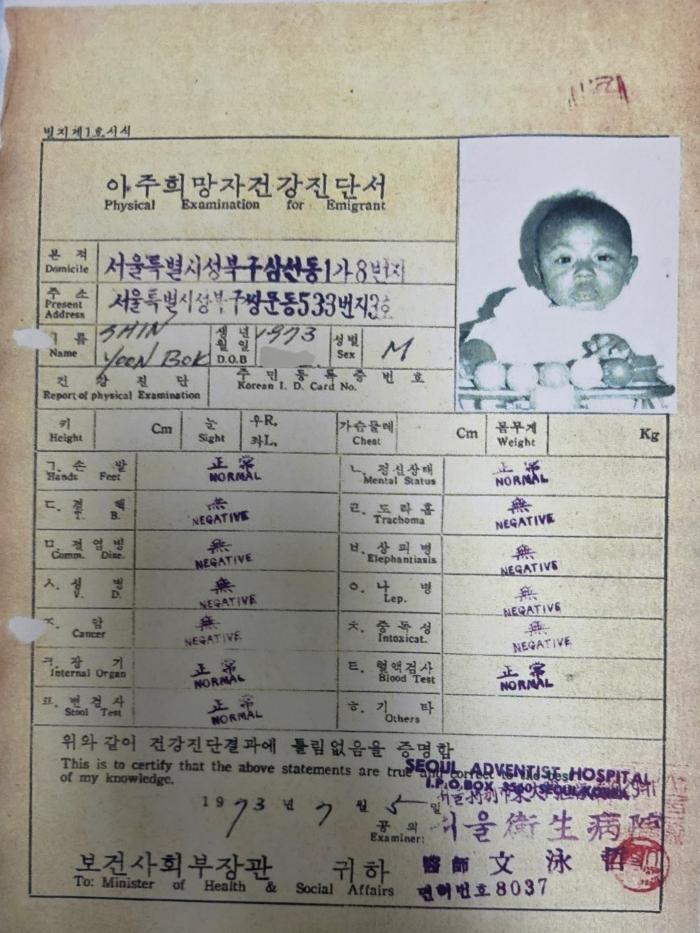 별지제1호서식
아주희망자건강진단서
Physical Examination for Emigrant
본적 서울특별시성북구삼선동1가8번지
Domicile
주소 서울특별시성북구쌍문동533번지3호
Present Address
이름 SHIN YOON BOK 생년월일 1973 성별 M
Name D.O.B Sex
건강진단 주민등록증번호
Report of physical Examination Korean I. D. Card No.
키 Cm 눈 우R. 가슴둘레 Cm 몸무게 Kg
Height Sight 좌L. Chest Weight
ㄱ. 손발 正常 ㄴ. 정신상태 正常
Hands Feet NORMAL Mental Status NORMAL
ㄷ. 결핵 無 ㄹ. 도라홈 無
T. B. NEGATIVE Trachoma NEGATIVE
ㅁ. 전염병 無 ㅂ. 상피병 無
Comm. Dise. NEGATIVE Elephantiasis NEGATIVE
ㅅ. 성병 無 ㅇ. 나병 無
V. D. NEGATIVE Lep. NEGATIVE
ㅈ. 암 無 ㅊ. 중독성 無
Cancer NEGATIVE Intoxicat. NEGATIVE
ㅋ. 장기 正常 ㅌ. 혈액검사 正常
Internal Organ NORMAL Blood Test NORMAL
ㅍ. 변검사 正常 ㅎ. 기타
Stool Test NORMAL Others
위와 같이 건강진단결과에 틀림없음을 증명함
This is to certify that the above statements are true and correct to the best
of my knowledge.
SEOUL ADVENTIST HOSPITAL
I.P.O.BOX SEOUL KOREA
1973년 7월 5일
공의 서울衛生病院
Examiner:
보건사회부장관 귀하 醫師 文泳哲
To: Minister of Health & Social Affairs 면허번호 8037